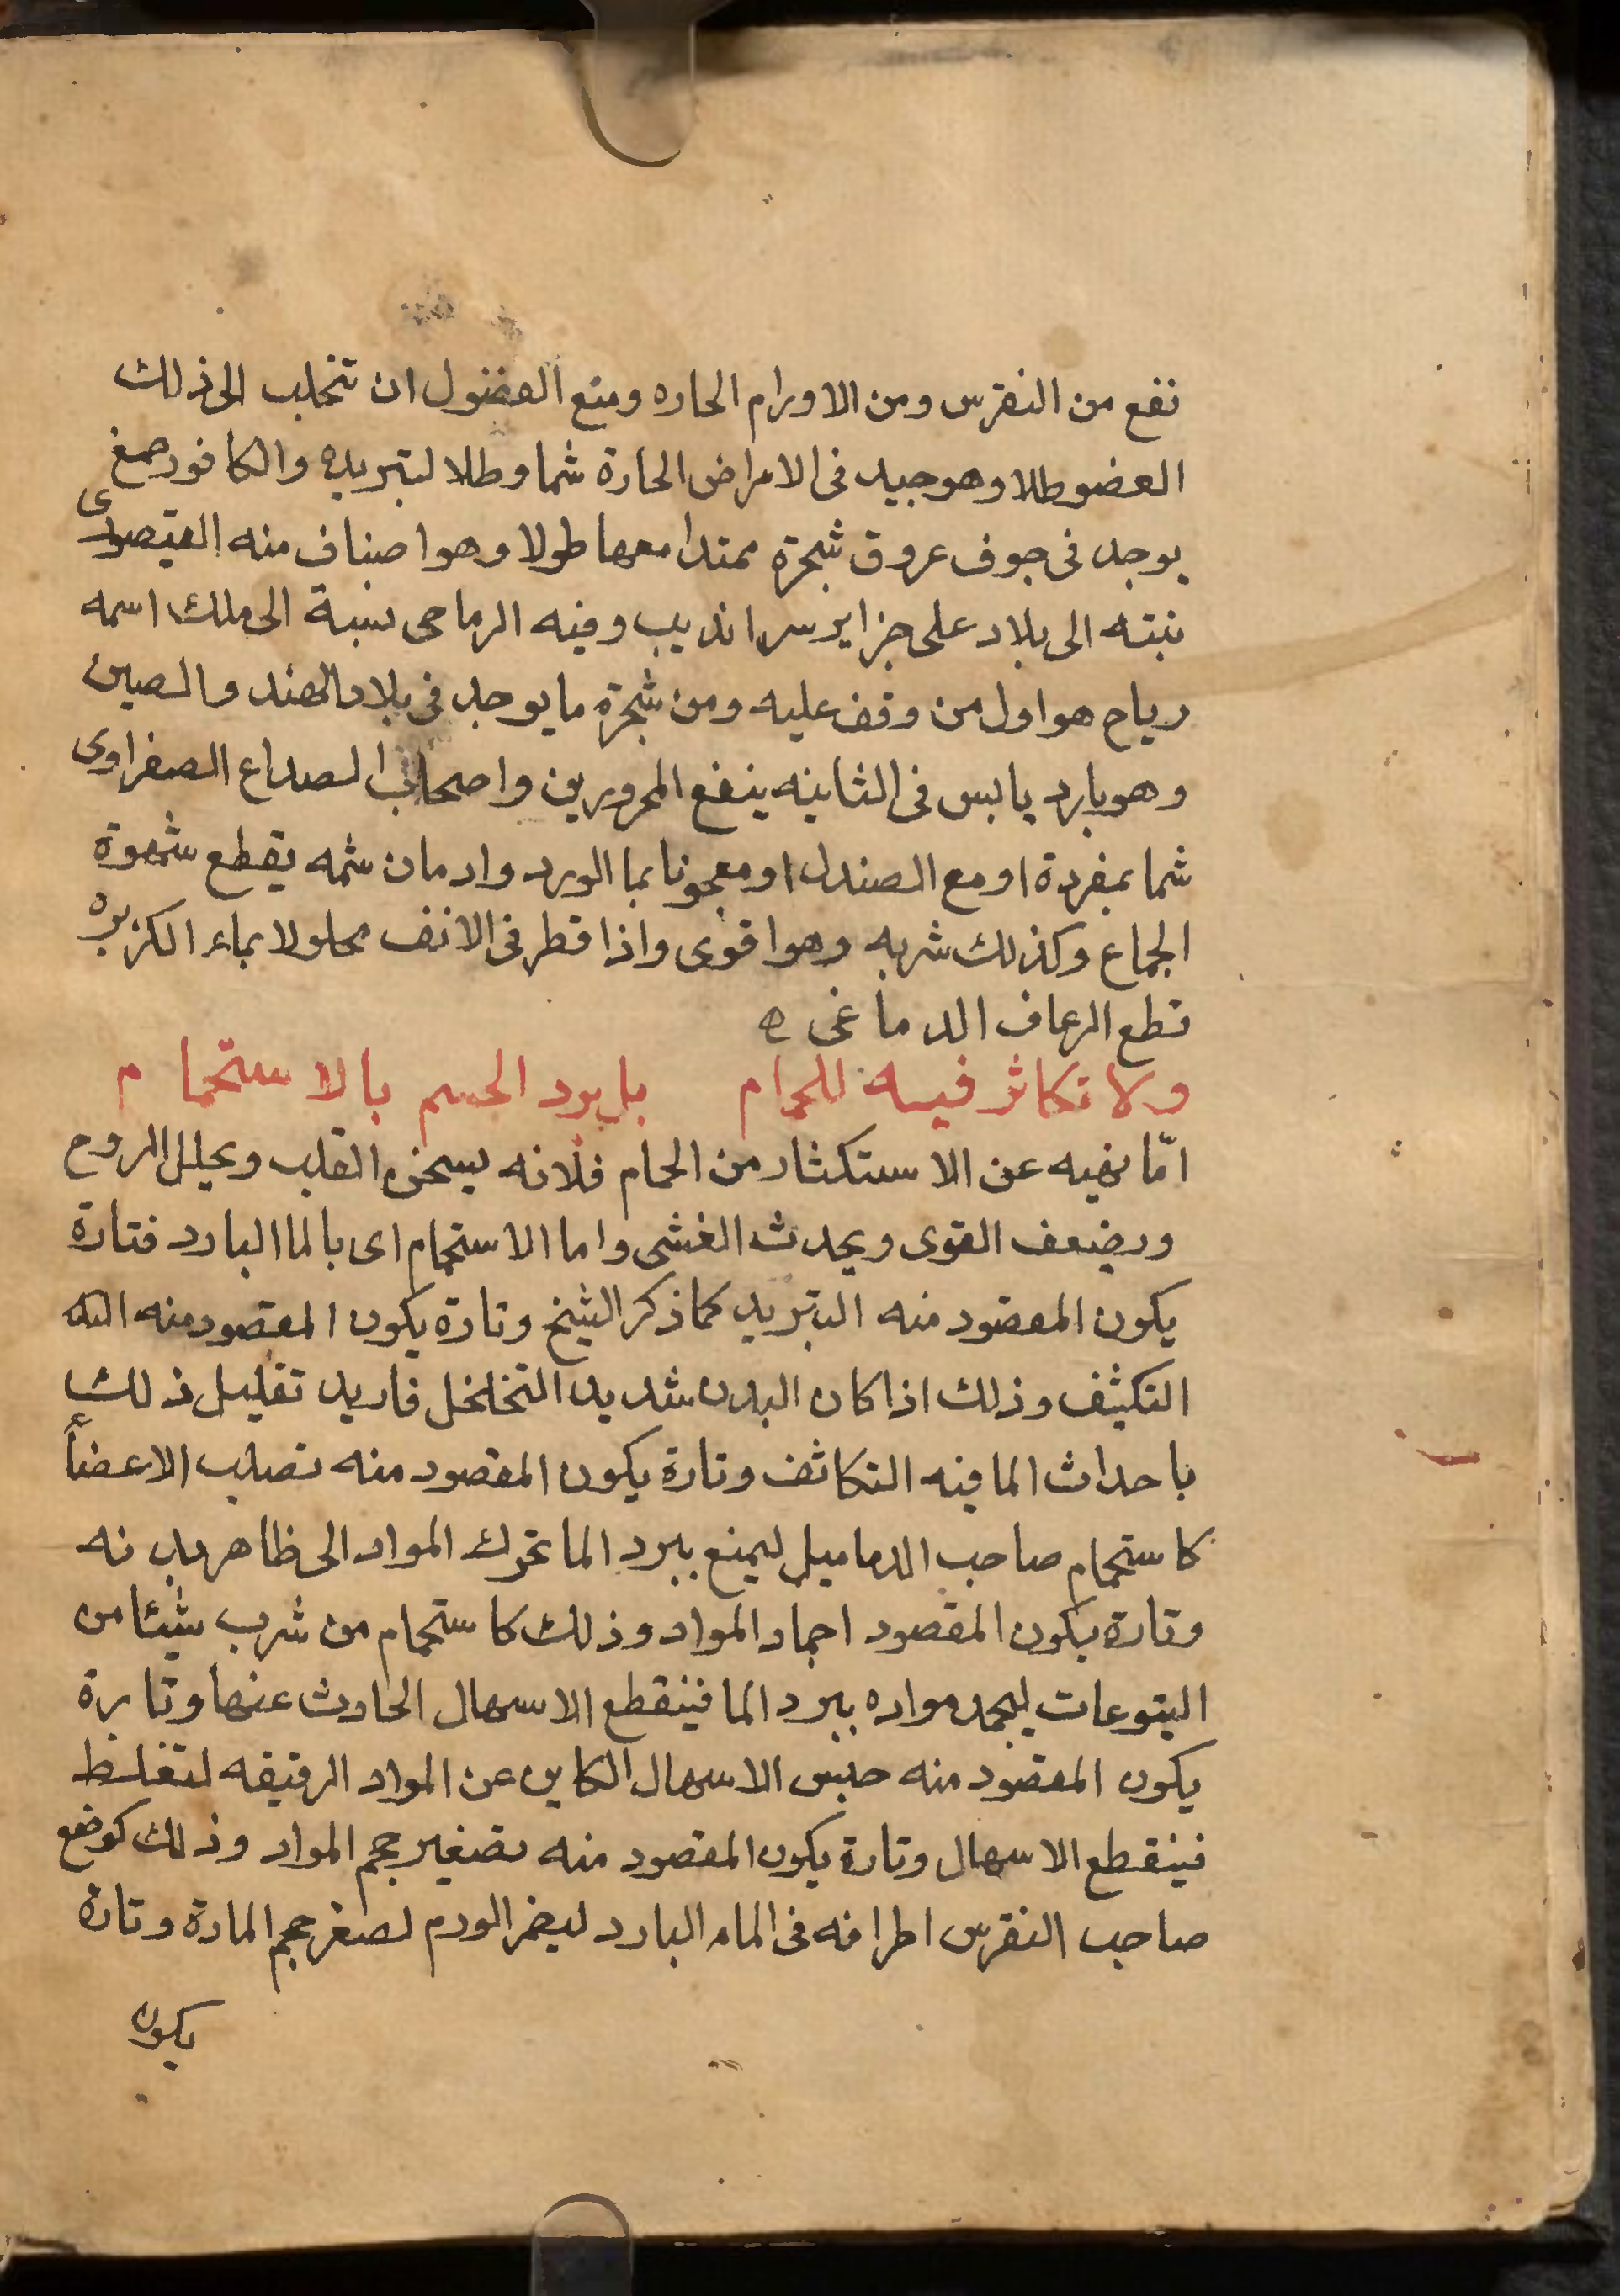 نفع من النقرس ومن الاورام الحاره ومنع الفضول ان تتحلب الى ذلك
العضو طلا وهو جيد فى الامراض الحارة شما وطلا لتبريده والكافور صمغ
يوجد فى جوف عروق شجرة ممتدا معها طولا وهو اصناف منه القيصورى
نبته الى بلاد على جزاير سرانديب وفيه الرماحى نسبة الى ملك اسمه
رياح هو اول من وقف عليه ومن شجرة ما يوجد فى بلاد الهند والصين
وهو بارد يابس فى الثانيه ينفع المحرورين واصحاب الصداع الصفراوى
شما بمفردة او مع الصندل او معجونا بما الورد وادمان شمه يقطع شهوة
الجماع وكذلك شربه وهو اقوى واذا قطر فى الانف محلولا بماء الكزبره
قطع الرعاف الدماغى ه
ولا تكاثر فيه للحمام بل برد الجسم بالاستحمام
امّا نهيه عن الاستكثار من الحمام فلانه يسخن القلب ويحلل الروح
ويضعف القوى ويحدث الغشى واما الاستحمام اى بالما البارد فتارة
يكون المقصود منه التبريد كما ذكر الشيخ وتارة يكون المقصود منه
التكثف وذلك اذا كان البدن شديد التخلخل فاريد تقليل ذلك
باحداث الما فيه التكاثف وتارة يكون المقصود منه تصلب الاعضأ
كاستحمام صاحب الدماميل ليمنع ببرد الما تحرك المواد الى ظاهر بدنه
وتارة يكون المقصود اجماد المواد وذلك كاستحمام من شرب شيئا من
اليتوعات ليجمد مواده ببرد الما فينقطع الاسهال الحادث عنها وتارة
يكون المقصود منه حبس الاسهال الكاين عن المواد الرقيقه لتغلظ
فينقطع الاسهال وتارة يكون المقصود منه تصغير حجم المواد وذلك كوضع
صاحب النقرس اطرافه فى الماء البارد ليضمر الورم لصغر حجم المادة وتارة
يكون